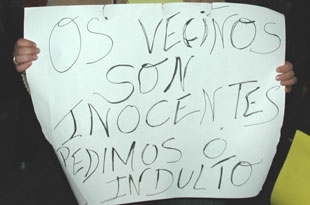 OS VECIÑOS
SON
INOCENTES
PEDIMOS O
INDULTO